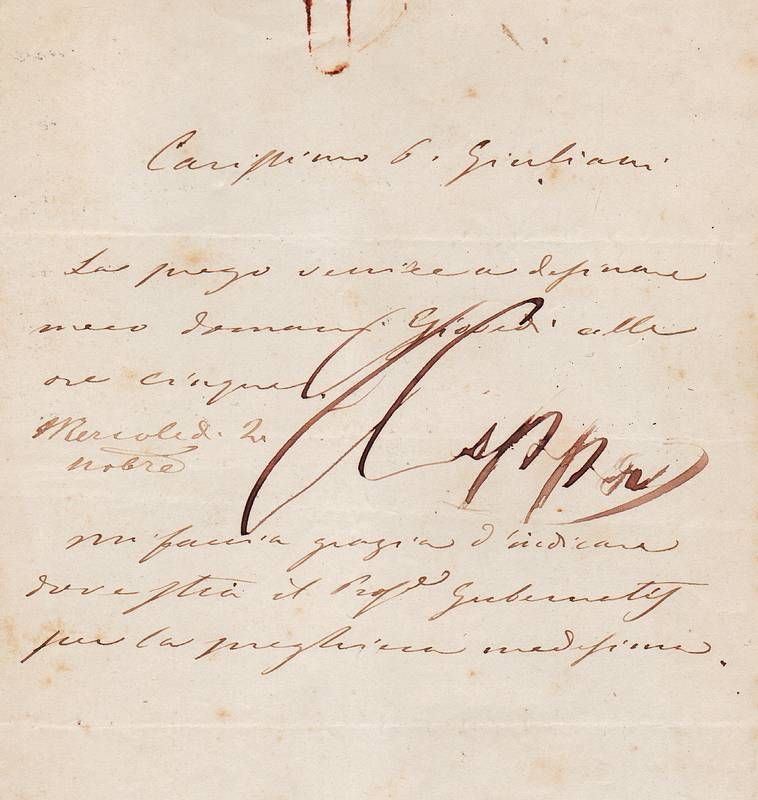 Carissimo G. Giuliani
La prego venire a desinare
meco domani Giovedi alle
ore cinque.
Mercoledi 2
nobre
mi faccia grazia d'indicare
dove stia il Profe Gubernatis
per la preghiera medesima.